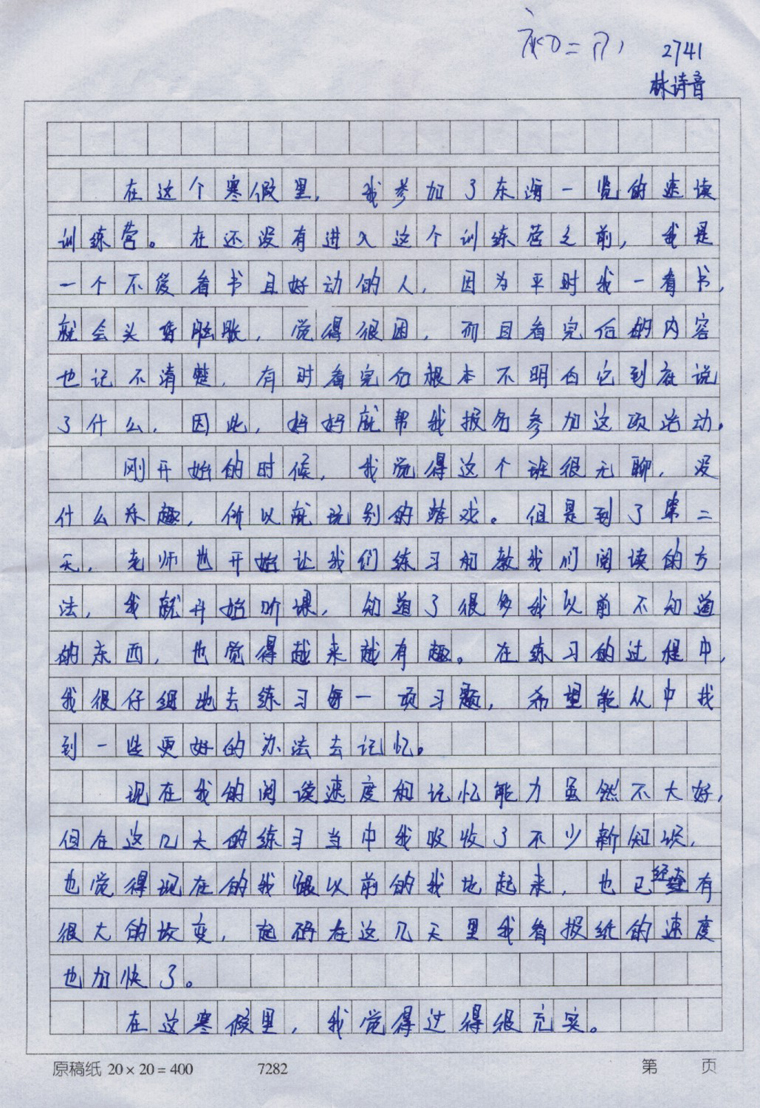 初二（7）
2741
林诗音
在这个寒假里，我参加了东海一览的速读
训练营。在还没有进入这个训练营之前，我是
一个不爱看书且好动的人，因为平时我一看书，
就会头昏脑胀，觉得很困，而且看完后的内容
也记不清楚，有时看完后根本不明白它到底说
了什么，因此，妈妈就帮我报名参加这项活动。
刚开始的时候，我觉得这个班很无聊，没
什么乐趣，所以就玩别的游戏。但是到了第二
天，老师也开始让我们练习和教我们阅读的方
法，我就开始听课，知道了很多我以前不知道
的东西，也觉得越来越有趣。在练习的过程中，
我很仔细地去练习每一项习题，希望能从中找
到一些更好的办法去记忆。
现在我的阅读速度和记忆能力虽然不大好，
但在这几天的练习当中我吸收了不少新知识，
也觉得现在的我跟以前的我比起来，也已经有
很大的改变，起码在这几天里我看报纸的速度
也加快了。
在这寒假里，我觉得过得很充实。
原稿纸 20×20=400 7282 第 页